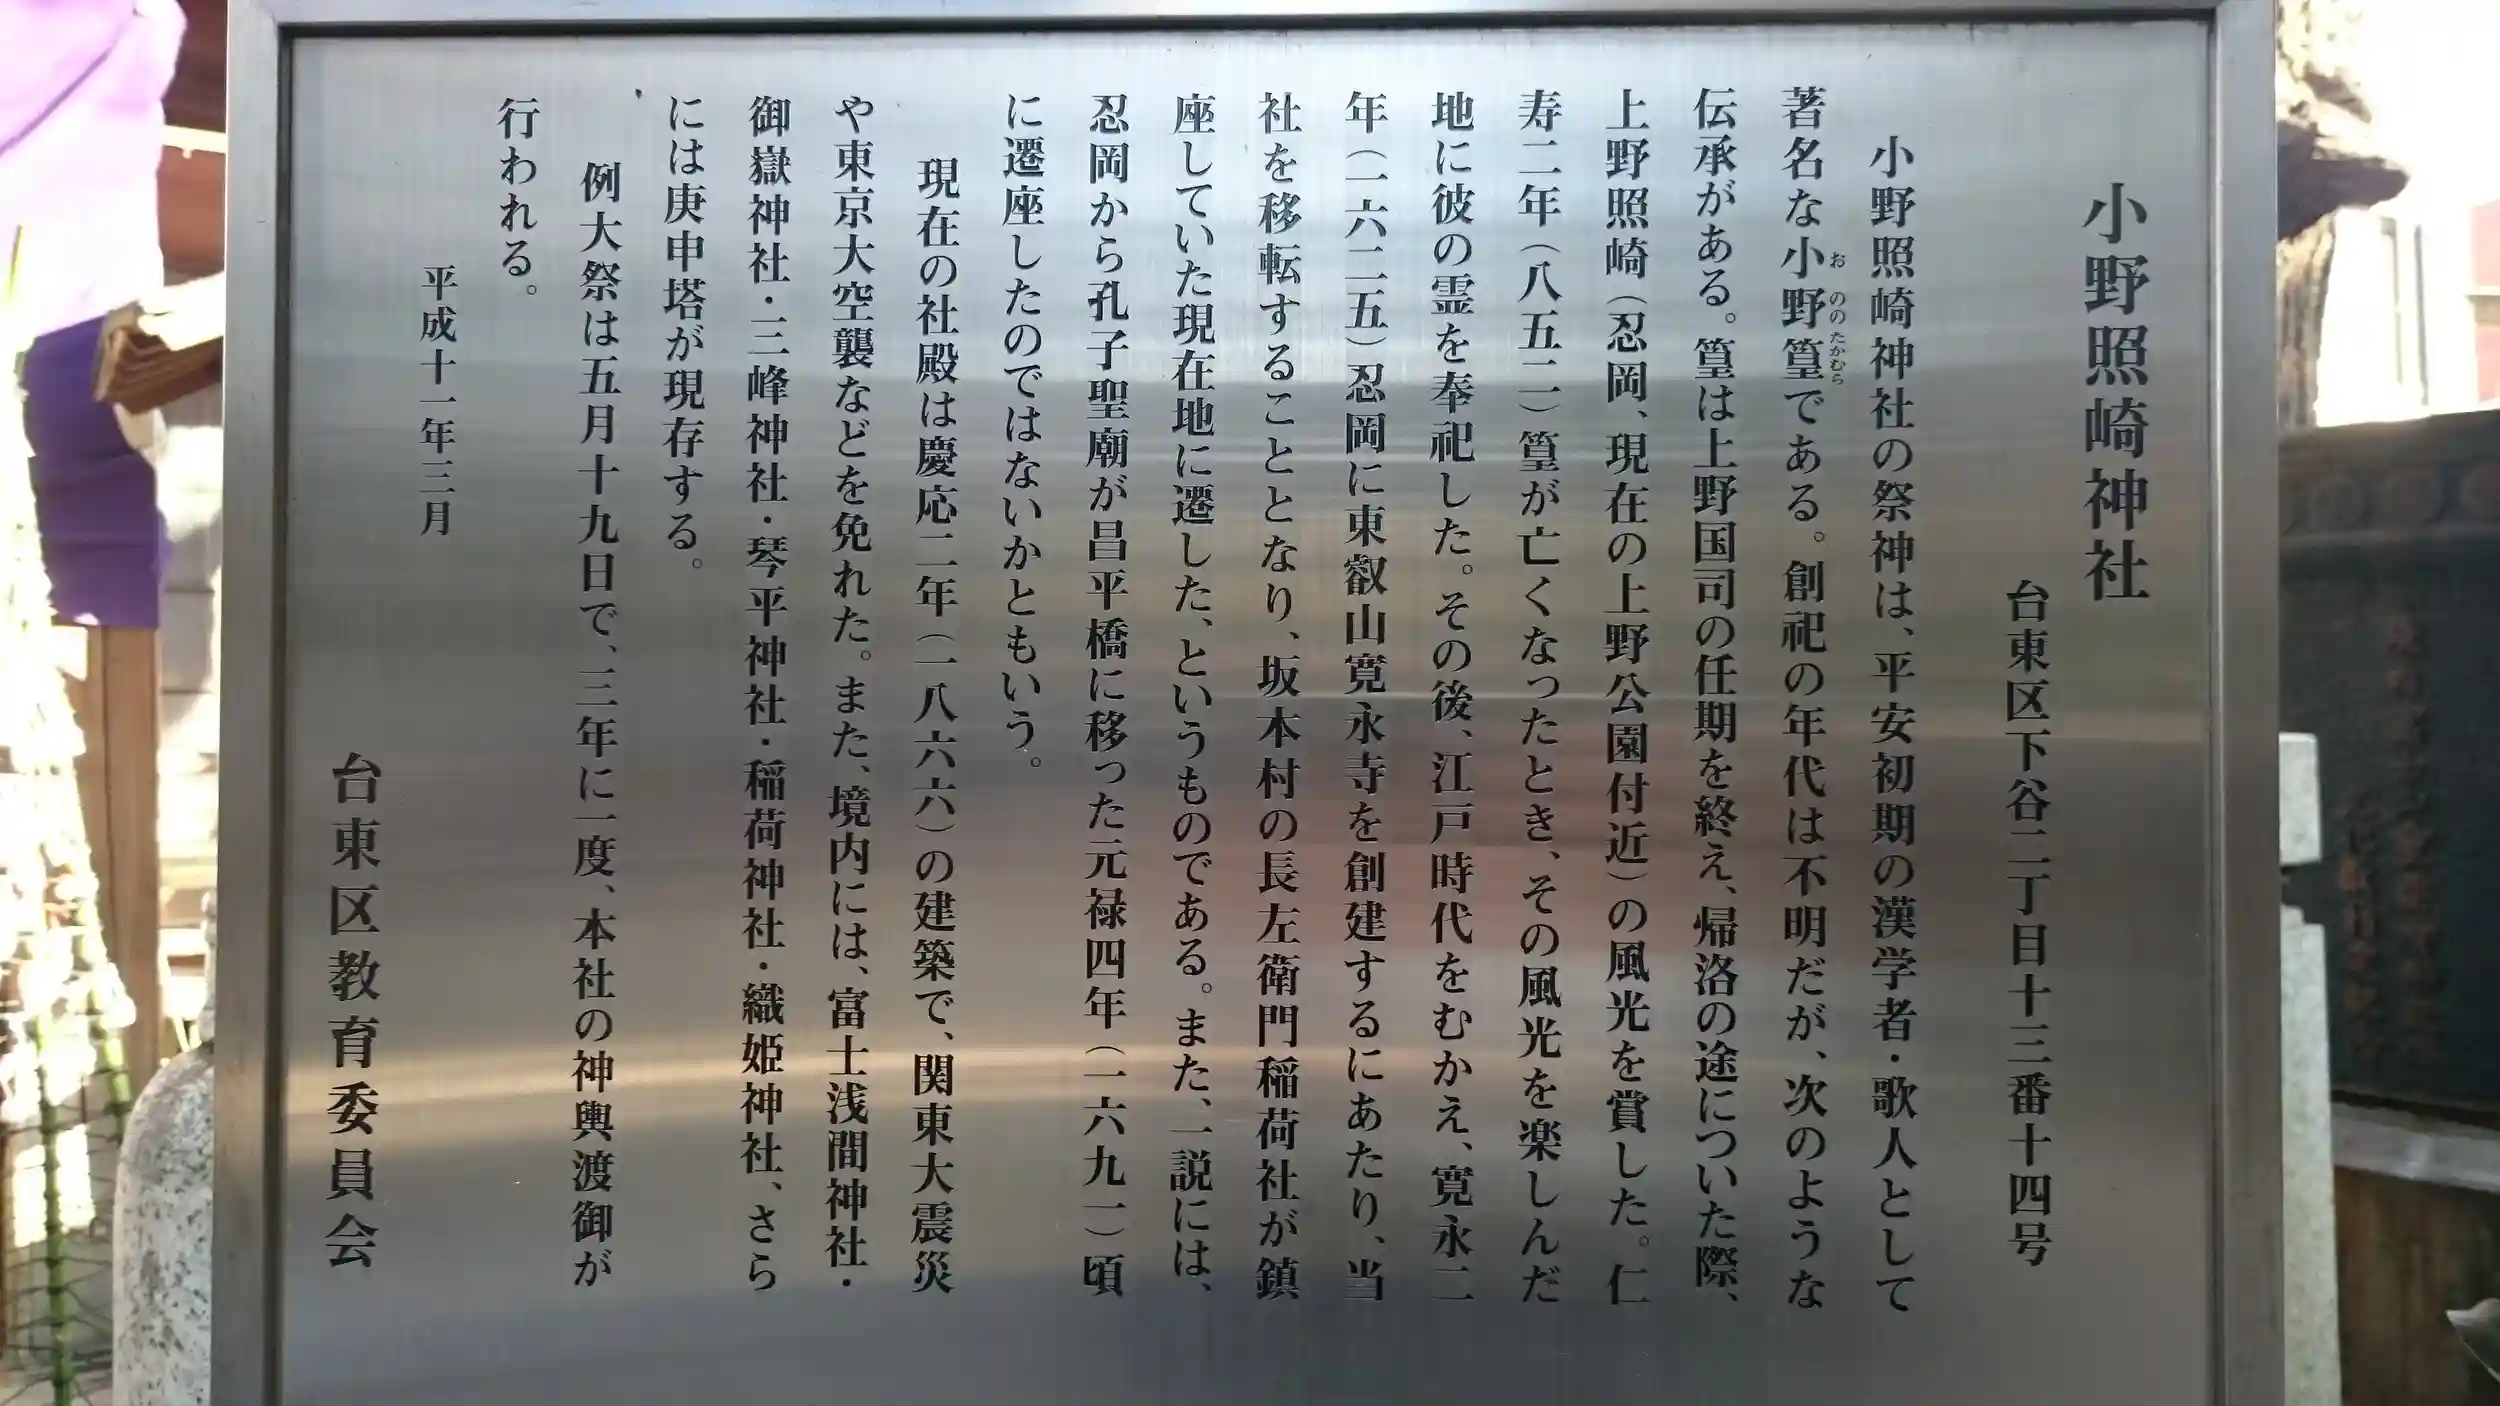 小野照崎神社
台東区下谷二丁目十三番十四号
小野照崎神社の祭神は、平安初期の漢学者・歌人として
著名な小野篁である。創祀の年代は不明だが、次のような
お ののたかむら
伝承がある。篁は上野国司の任期を終え、帰洛の途についた際、
上野照崎（忍岡、現在の上野公園付近）の風光を賞した。仁
寿二年（八五二）篁が亡くなったとき、その風光を楽しんだ
地に彼の霊を奉祀した。その後、江戸時代をむかえ、寛永二
年（一六二五）忍岡に東叡山寛永寺を創建するにあたり、当
社を移転することとなり、坂本村の長左衛門稲荷社が鎮
座していた現在地に遷した、というものである。また、一説には、
忍岡から孔子聖廟が昌平橋に移った元禄四年（一六九一）頃
に遷座したのではないかともいう。
現在の社殿は慶応二年（一八六六）の建築で、関東大震災
や東京大空襲などを免れた。また、境内には、富士浅間神社・
御嶽神社・三峰神社・琴平神社・稲荷神社・織姫神社、さら
には庚申塔が現存する。
例大祭は五月十九日で、三年に一度、本社の神輿渡御が
行われる。
平成十一年三月
台東区教育委員会